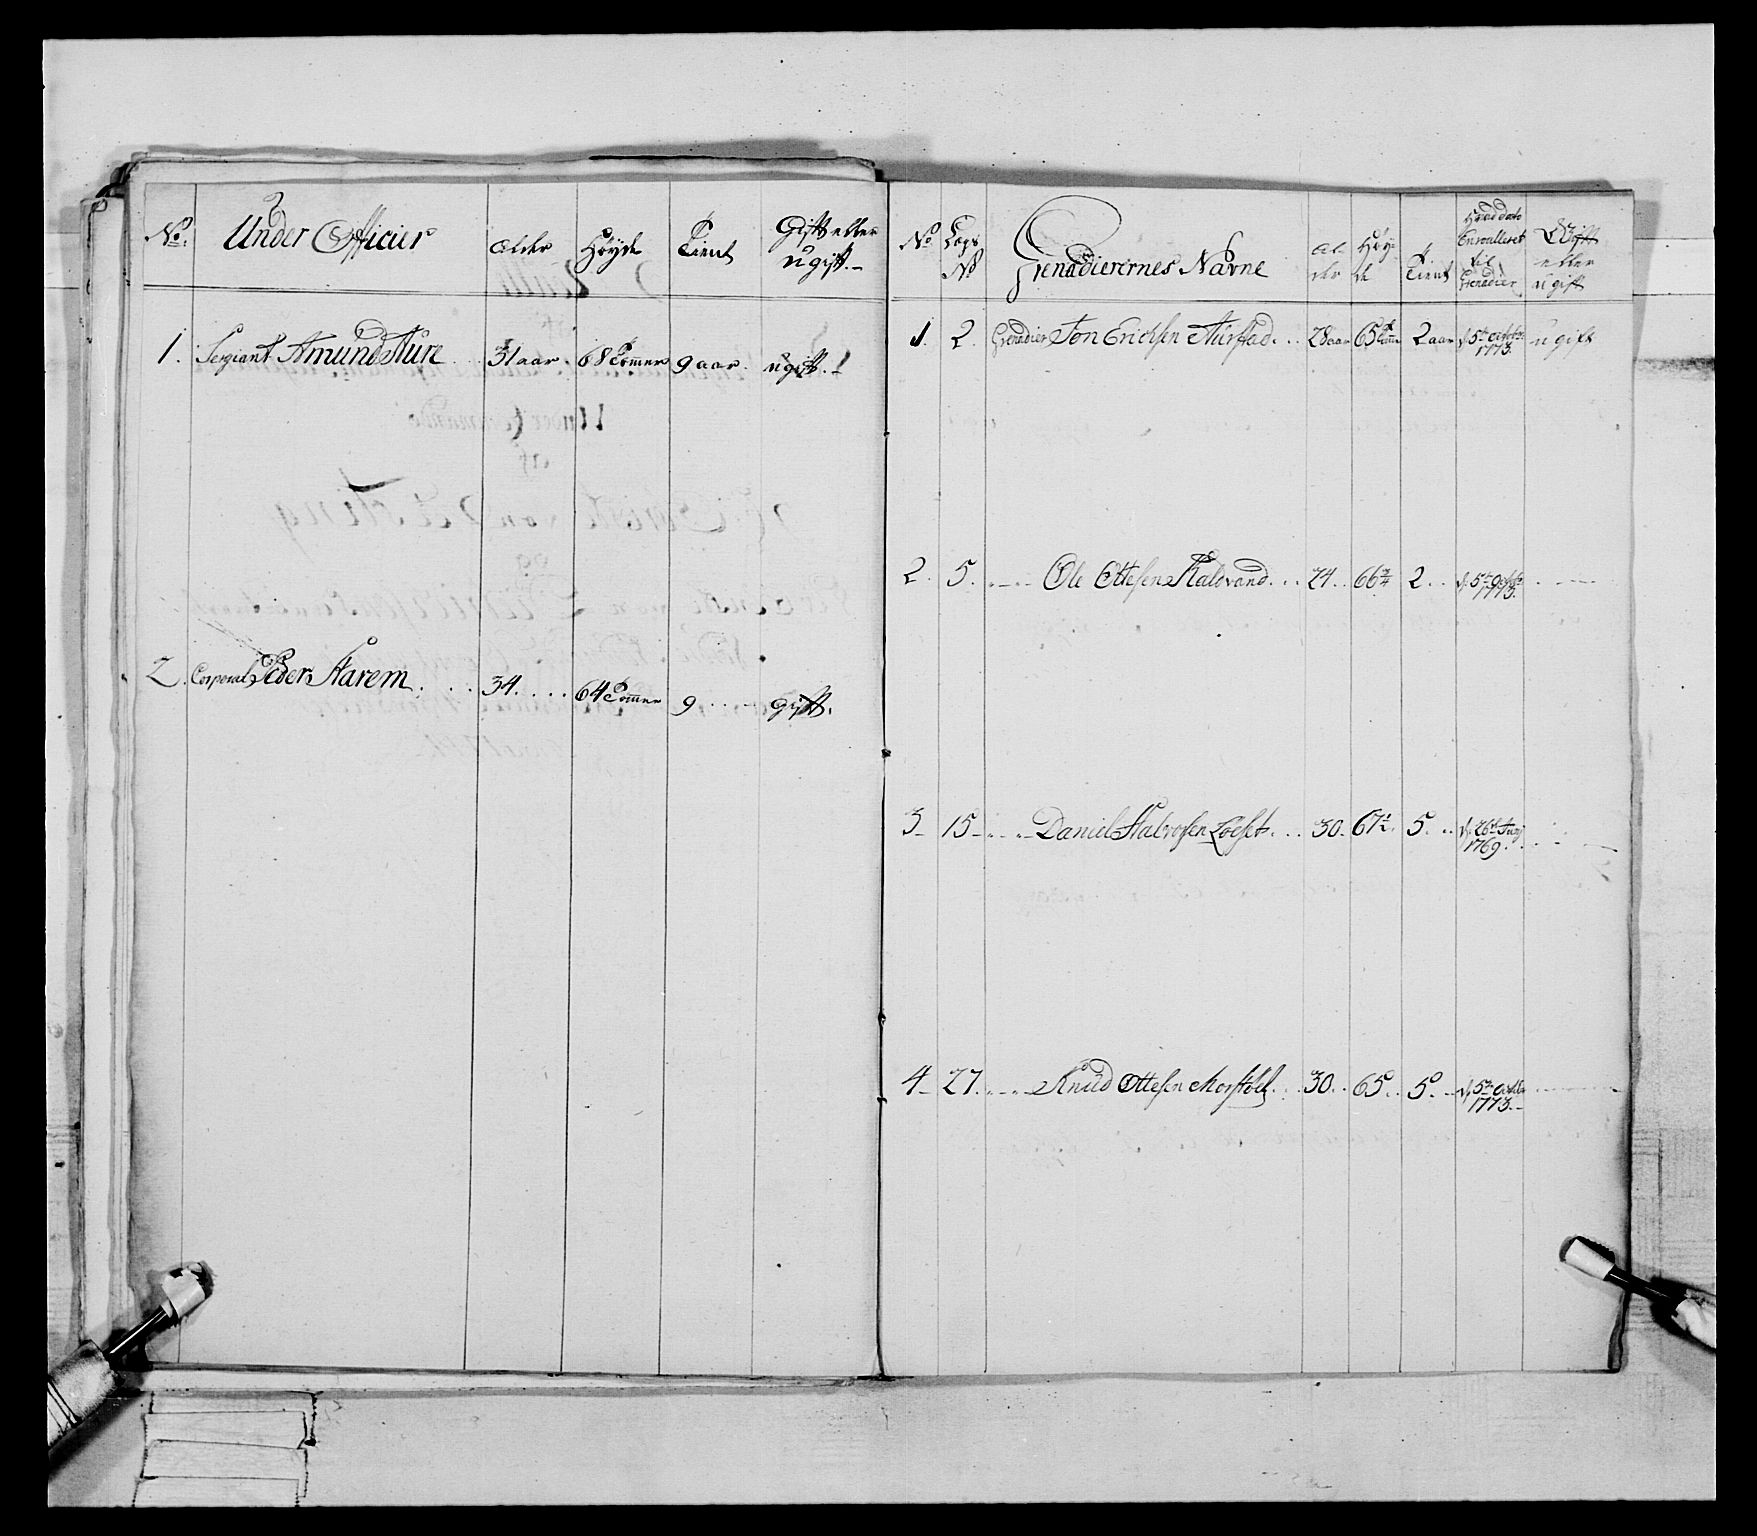 No. Under Officier Alder Høyde Tient Gift eller
ugift.
1. Sergiant Amund Aure 31 aar. 68 Tommer 9 aar. ugift.
2. Corporal Peder Aarem 34 64 Tommer 9 gift.
No Lægs No Grenadierernes Navne Alder Høyde Tient Hvad dato Enroulleret til Grenadier Gift eller ugift
1. 2. Grenadier Jon Erichsen Aürstad 28 aar 65 Tomme 2 aar d. 5te octobr 1773. ugift
2. 5. Ole Ottesen Kalvand 24 66 3/4 2 d. 5te octobr 1773.
3 15 Daniel Halvorsen Løeset 30 67 1/2 5 d. 26t Juny 1769.
4 27 Knud Ottesen Morstøel 30 65 5 d. 5te octobr 1773.